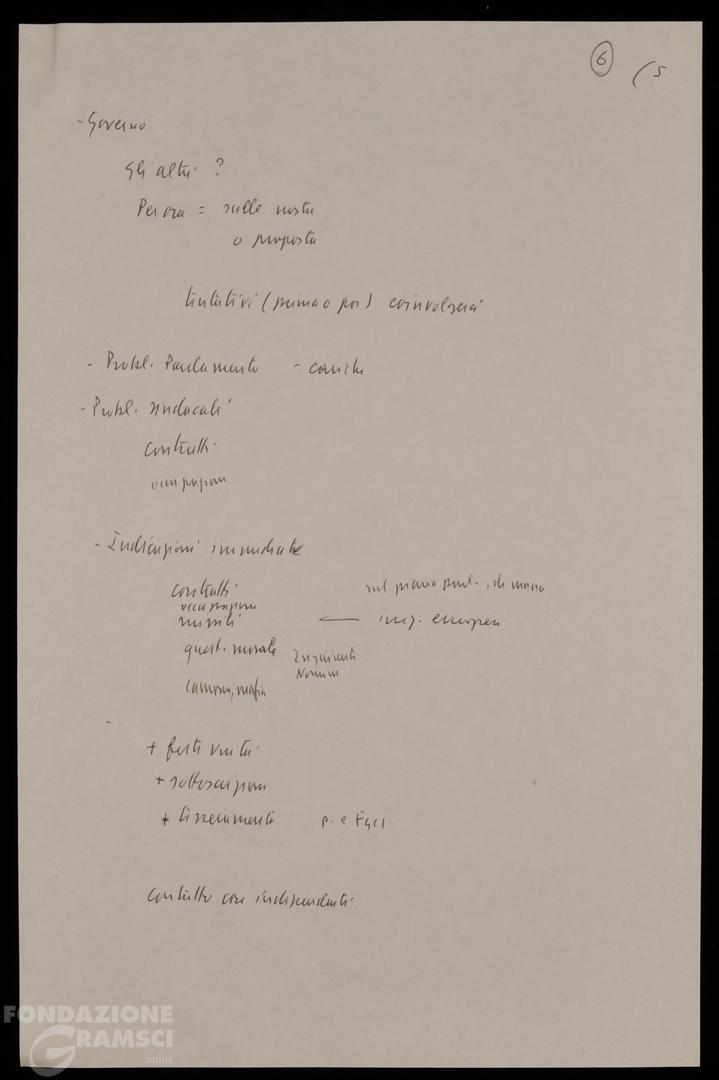 6 (5
- Governo
Gli altri ?
Per ora = sulle nostre
o proposta
tentativi (prima o poi) coinvolgerci
- Probl. Parlamento - cariche
- Probl. sindacali
contratti
occupazione
- Indicazioni immediate
contratti sul piano parl., di massa
occupazione
missili iniz. europea
quest. morale Inquirente
Nomine
camorra, mafia
-
+ feste Unità
+ sottoscrizione
+ tesseramento p. e FGCI
contatto con indipendenti
FONDAZIONE
GRAMSCI
onlus